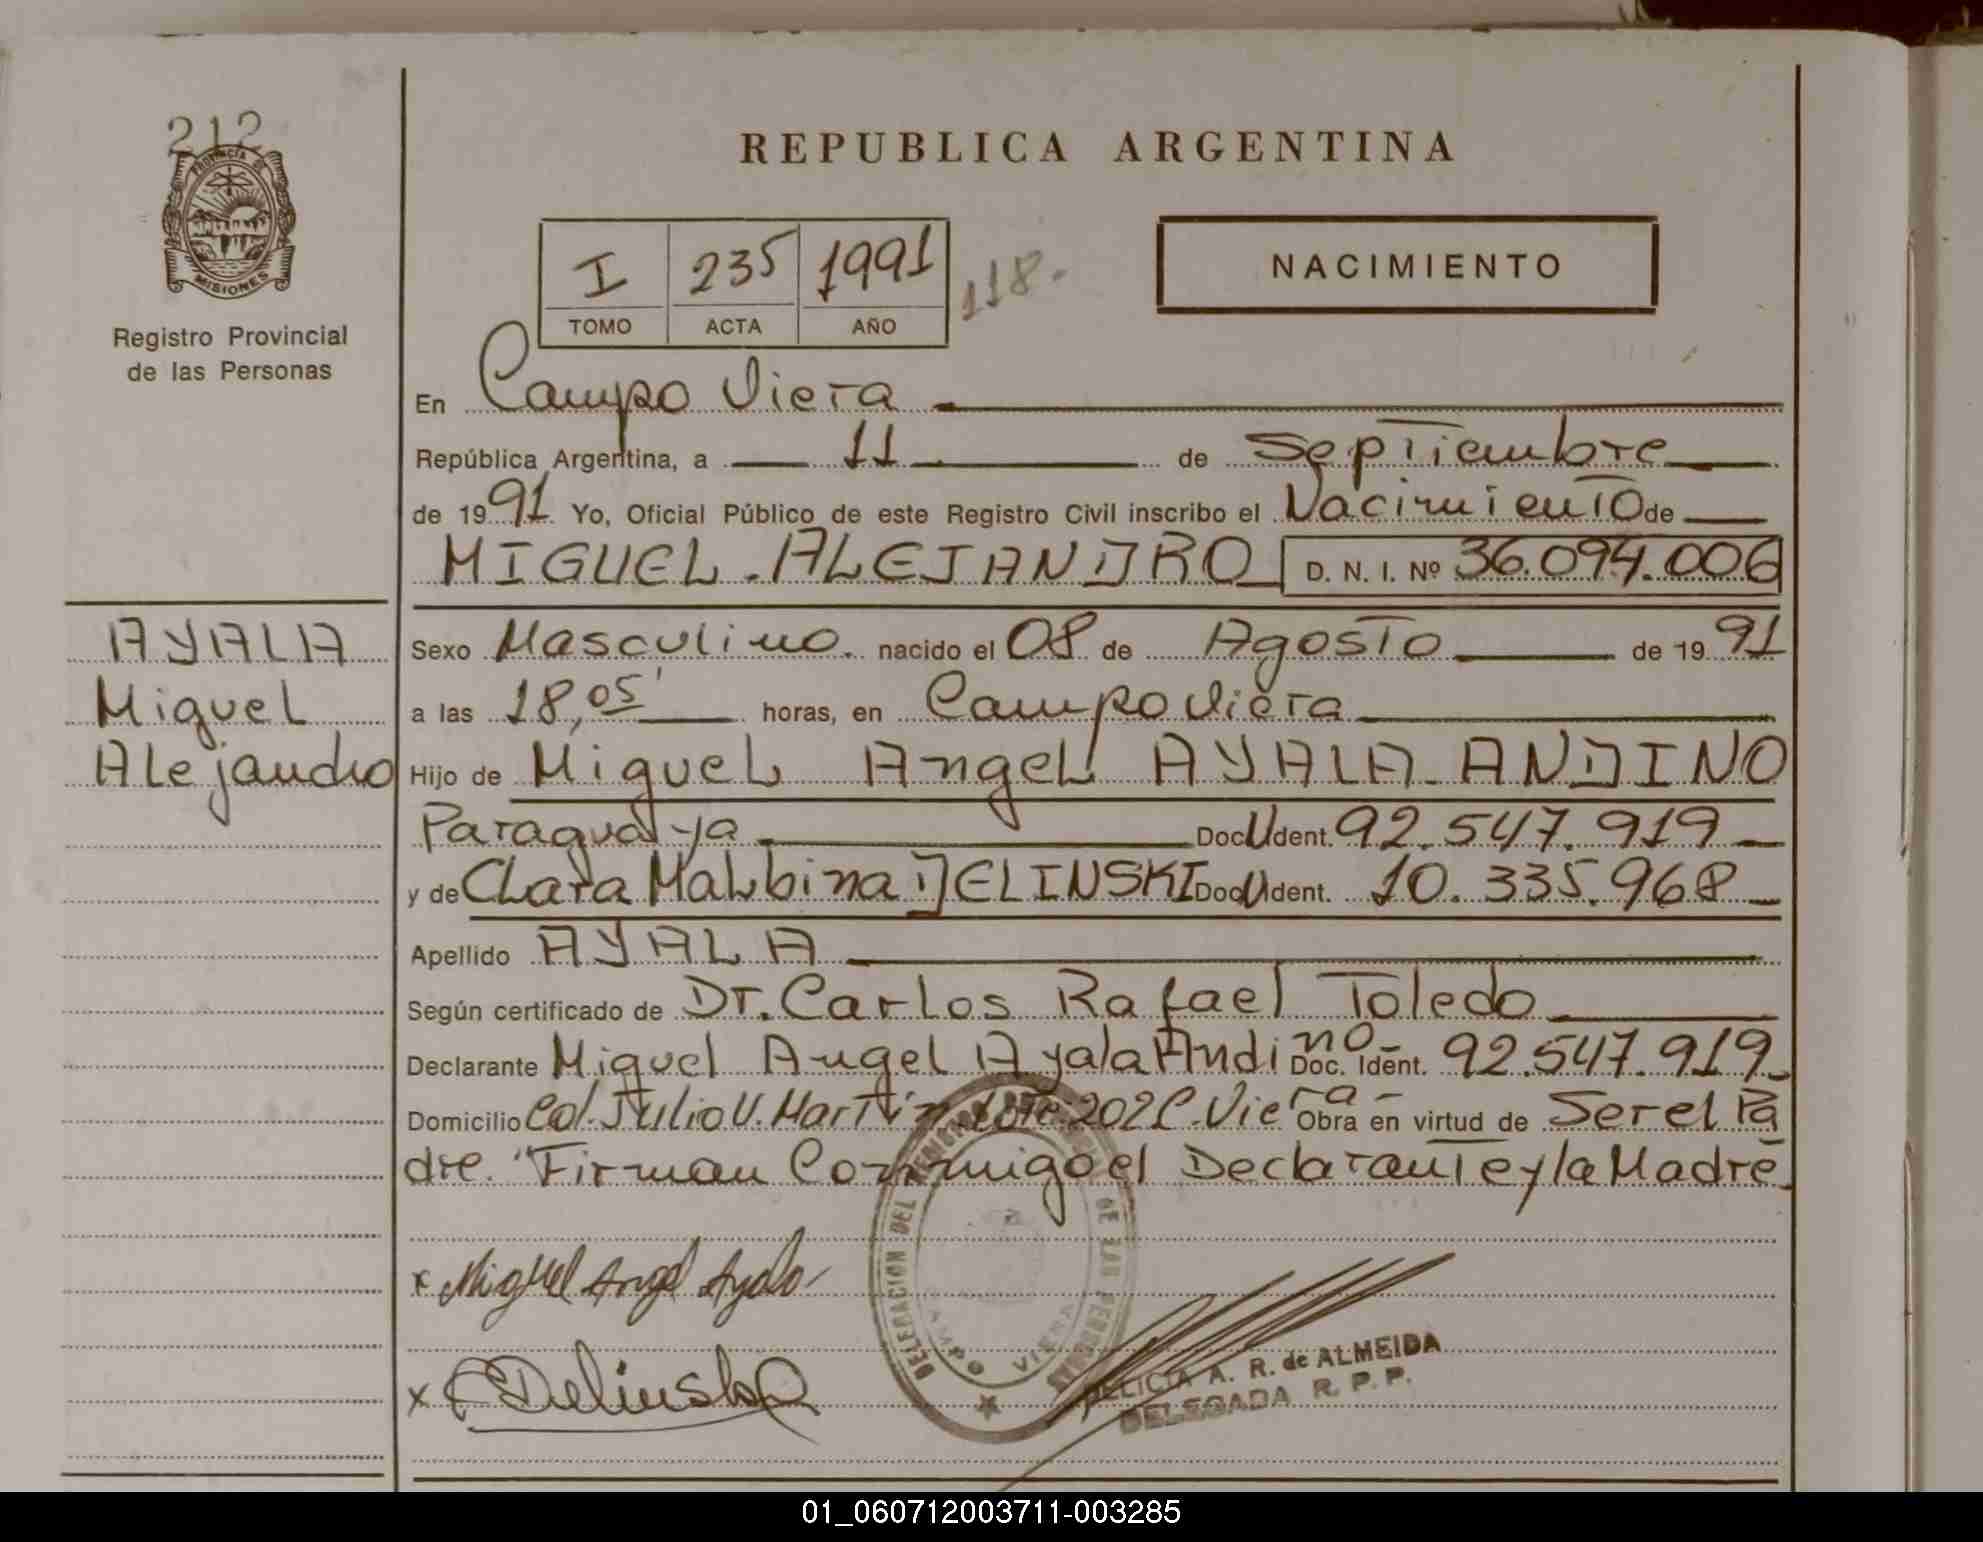 212
PROVINCIA DE
MISIONES
Registro Provincial
de las Personas
REPUBLICA ARGENTINA
I 235 1991 118.
TOMO ACTA AÑO
NACIMIENTO
En Campo Viera
República Argentina, a 11 de Septiembre
de 1991 Yo, Oficial Público de este Registro Civil inscribo el Nacimiento de
MIGUEL ALEJANDRO D. N. I. Nº 36.094.006
AYALA
Miguel
Alejandro
Sexo Masculino. nacido el 08 de Agosto de 1991
a las 18,05' horas, en Campo Viera
Hijo de Miguel Angel AYALA ANDINO
Paraguaya Doc. Ident. 92.547.919
y de Clara Malbina DELINSKI Doc. Ident. 10.335.968
Apellido AYALA
Según certificado de Dr. Carlos Rafael Toledo
Declarante Miguel Angel Ayala Andino Doc. Ident. 92.547.919
Domicilio Col. Julio U. Martin Lote 202 C. Viera Obra en virtud de Ser el Pa
dre. Firman Conmigo el Declarante y la Madre
x Miguel Angel Ayala
x CDelinski
DELEGACION DEL DE LAS PERSONAS
CAMPO VIERA
DELICIA A. R. de ALMEIDA
DELEGADA R. P. P.
01_060712003711-003285